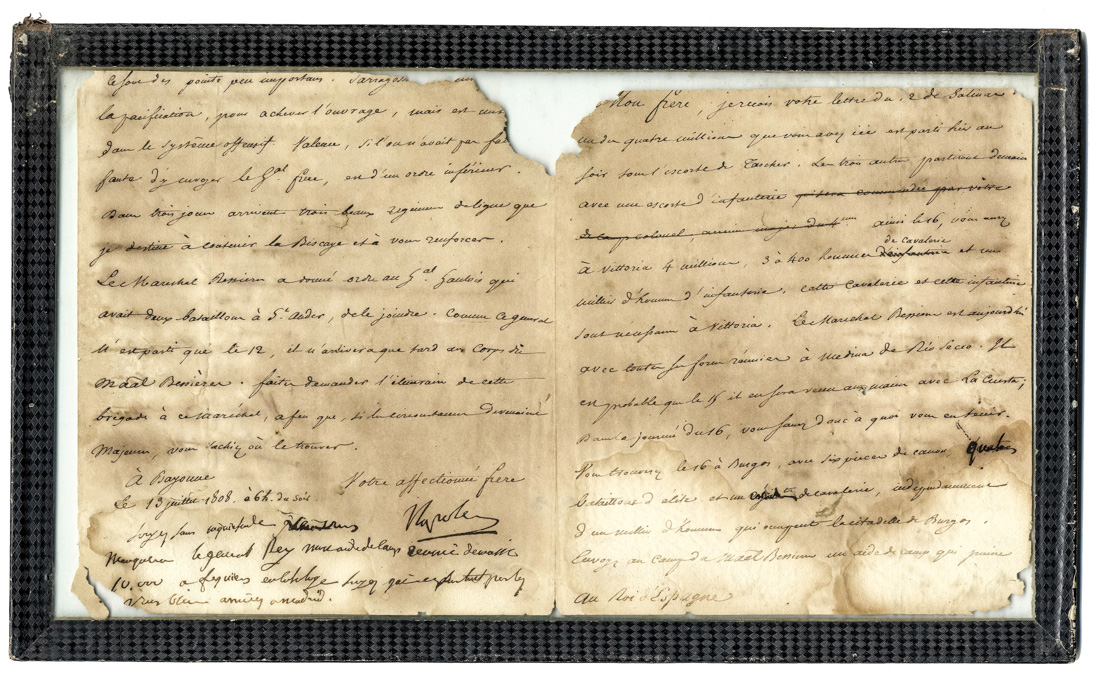 ce sont des points peu importans. Sarragosse
la pacification, pour achever l'ouvrage, mais est
dans le système offensif. Valence, si l'on n'avait pas fait
faute d'y envoyer le Gal frère, est d'un ordre inférieur.
Dans trois jours arrivent trois beaux régimens de ligne que
je destine à contenir la Biscaye et à vous renforcer.
Le Maréchal Bessières a donné ordre au Gal Gaulois qui
avait deux bataillons à St Ander, de le joindre. Comme ce général
n'est parti que le 12, il n'arrivera que tard au Corps du
Maal Bessières. faites demander l'itinéraire de cette
brigade à ce Maréchal, afin que, si les circonstances devenaient
Majeures, vous sachiez où le trouver.
À Bayonne
Votre affectionné frère
le 13 juillet 1808. à 6h. du soir
Napoleon
Soyez sans inquiétude
le general Rey mon aide de camp
10.000 a
vous bien arriver a madrid.
Mon frère, je reçois votre lettre du 12 de
un des quatre millions que vous avez ici est parti hier au
soir sous l'escorte de Tascher. Les trois autres partirons demain
avec une escorte d'infanterie qui sera commandée par votre
ancien major du 4eme ainsi le 16, vous aurez
de cavalerie
à Vittoria 4 millions, 3 à 400 hommes d'infanterie et un
millier d'hommes d'infanterie. cette cavalerie et cette infanterie
sont nécessaires à Vittoria. Le Maréchal Bessières est aujourd'hui
avec toutes ses forces réunies à Medina de Rio Seco. Il
est probable que le 15 il en sera venu aux mains avec La Cuesta;
Dans la journée du 16, vous saurez donc à quoi vous en tenir.
Vous trouverez le 16 à Burgos, avec six pièces de canon, quatre
bataillons d'élite et un de cavalerie, indépendamment
d'un millier d'hommes qui occupent la citadelle de Burgos.
Envoyez au camp du Maal Bessières un aide de camp qui puisse
Au Roi d'Espagne